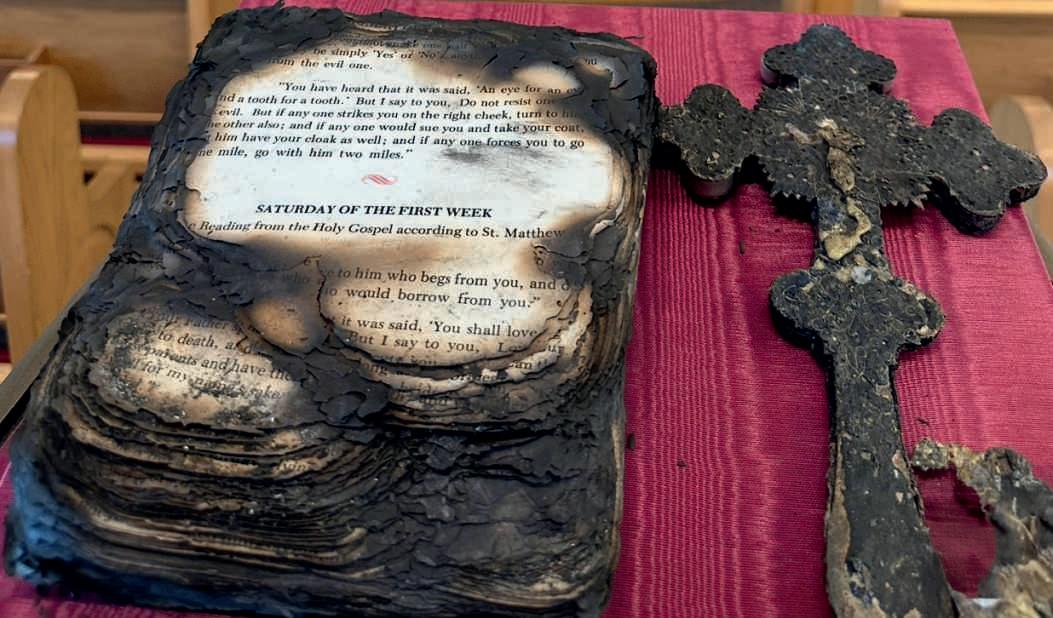 be simply 'Yes' or 'No'
from the evil one.
"You have heard that it was said, 'An eye for an
and a tooth for a tooth.' But I say to you, Do not resist one
evil. But if any one strikes you on the right cheek, turn to
other also; and if any one would sue you and take your coat,
him have your cloak as well; and if any one forces you to go
one mile, go with him two miles."
SATURDAY OF THE FIRST WEEK
Reading from the Holy Gospel according to St. Matthew
to him who begs from you, and
would borrow from you."
it was said, 'You shall love
But I say to you,
to death,
parents and have
for my